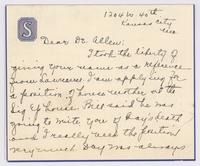 S
1204 W. 40th
Kansas City
Mo.
Dear Dr. Allen:
I took the liberty of
giving your name as a reference
for I am applying for
a position of house mother at the
Sig Ep house. Bill said he was
going to write you of Ray's death
and I really need the position
very much. Ray was always